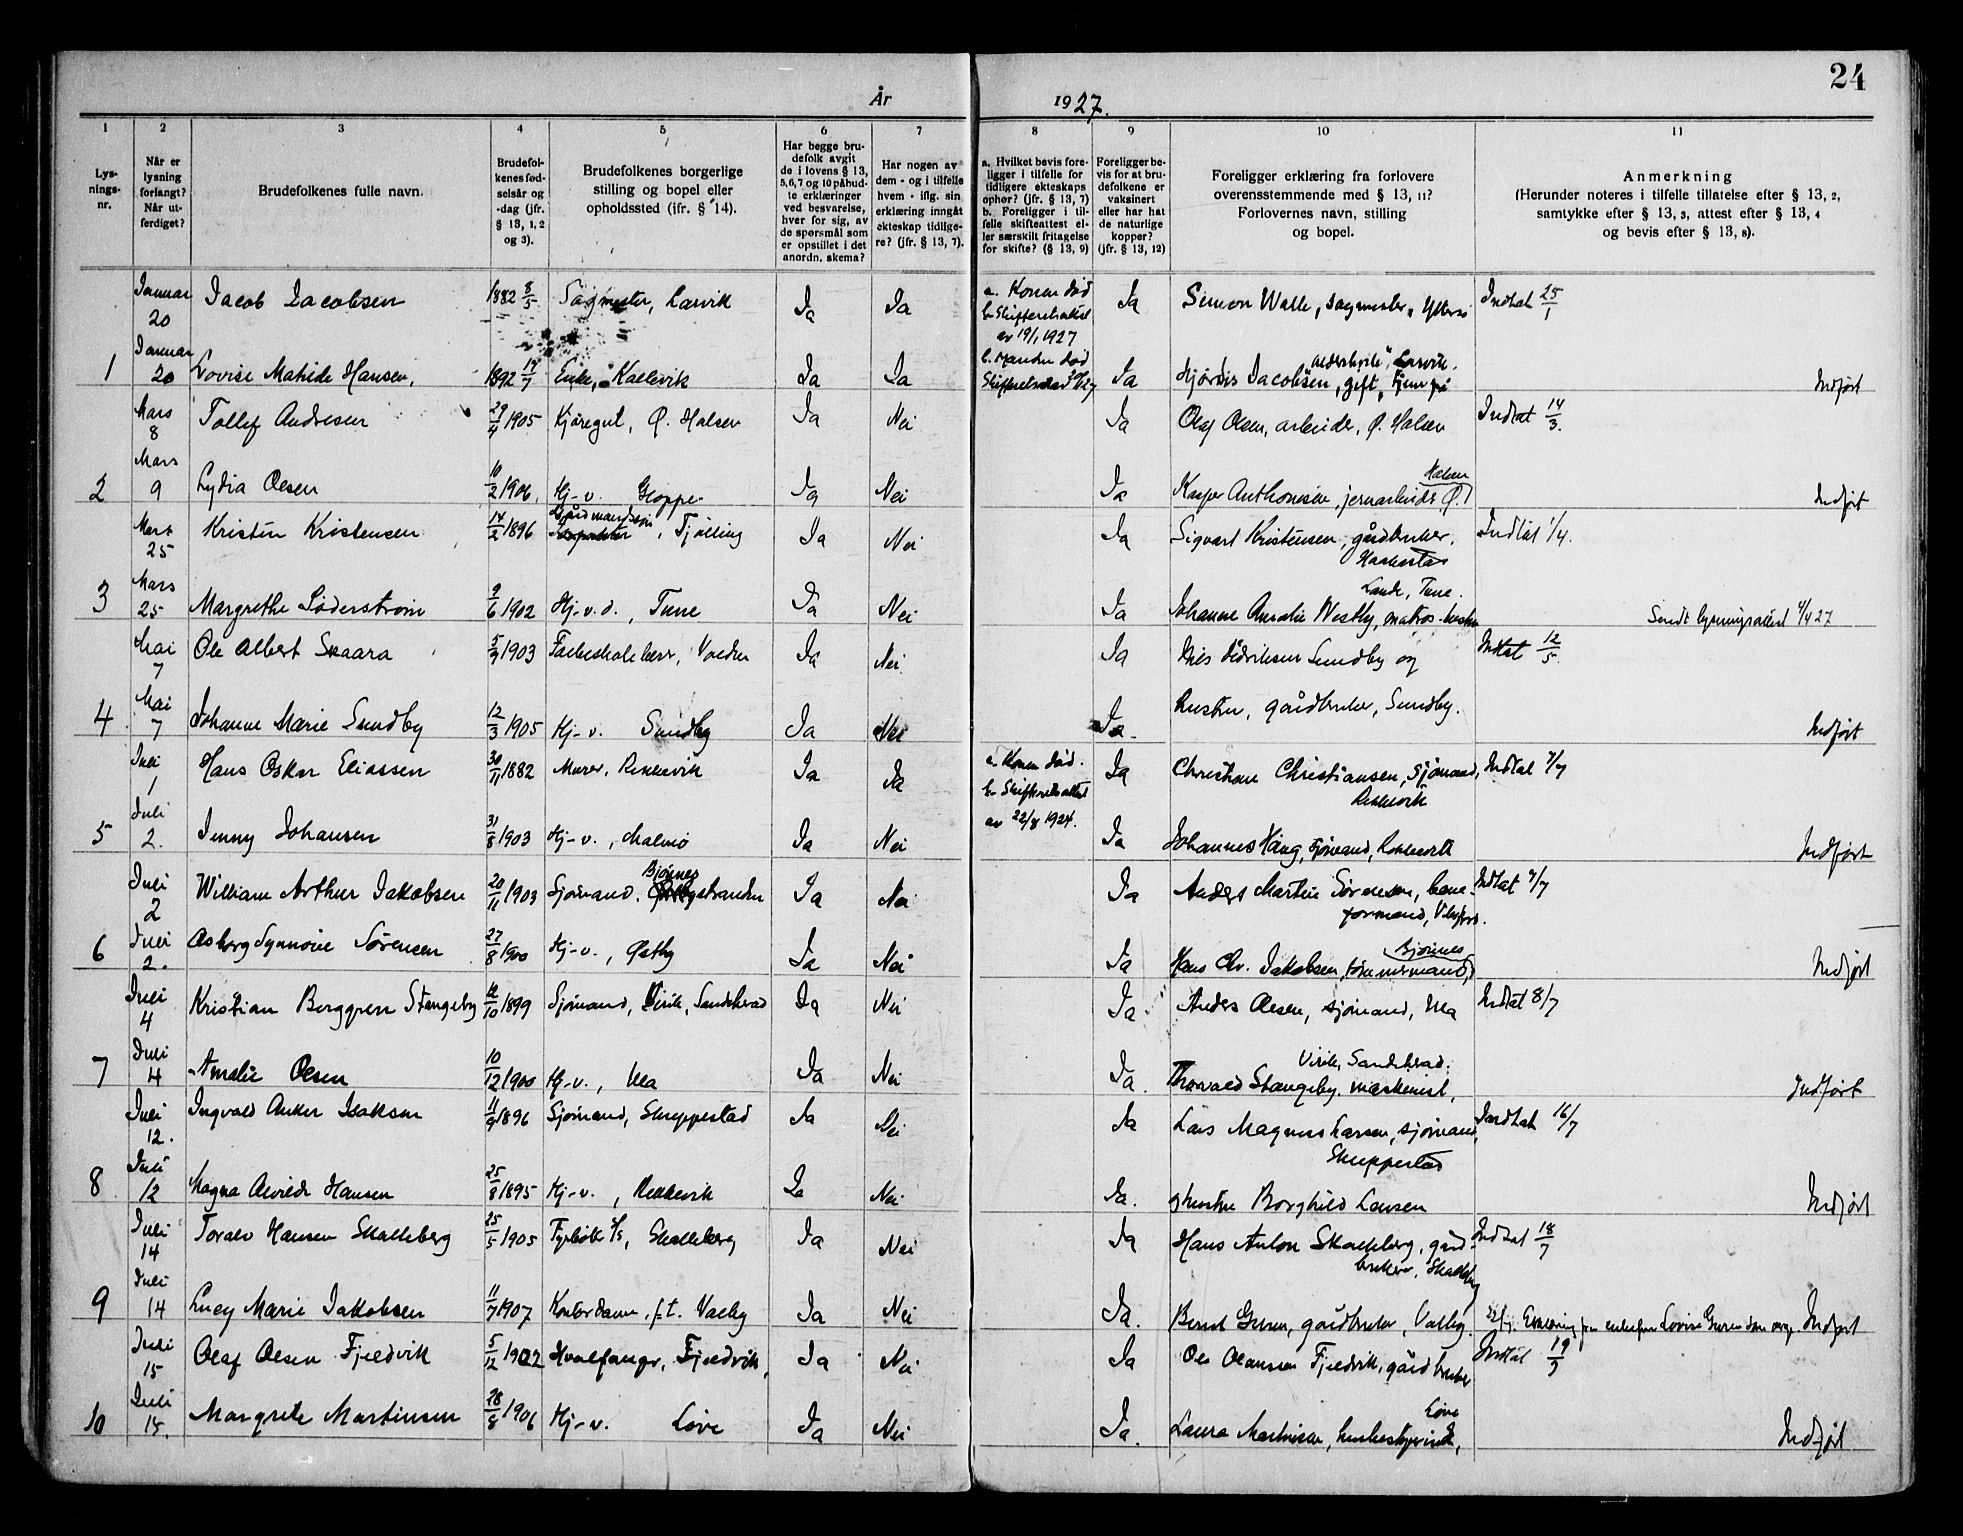 24
År 1927.
1 2 3 4 5 6 7 8 9 10 11
Lysnings-nr.
Når er lysning forlangt? Når utferdiget?
Brudefolkenes fulle navn.
Brudefolkenes fødselsår og -dag (jfr. § 13, 1, 2 og 3).
Brudefolkenes borgerlige stilling og bopel eller opholdssted (ifr. § 14).
Har begge brudefolk avgit de i lovens § 13, 5, 6, 7 og 10 påbudte erklæringer ved besvarelse, hver for sig, av de spørsmål som er opstillet i det anordn. skema?
Har nogen av dem - og i tilfelle hvem - iflg. sin erklæring inngått ekteskap tidligere? (jfr. § 13, 7).
a. Hvilket bevis foreligger i tilfelle for tidligere ekteskaps ophør? (jfr. § 13, 7) b. Foreligger i tilfelle skifteattest eller særskilt fritagelse for skifte? (§ 13, 9)
Foreligger bevis for at brudefolkene er vaksinert eller har hat de naturlige kopper? (jfr. § 13, 12)
Foreligger erklæring fra forlovere overensstemmende med § 13, 11? Forlovernes navn, stilling og bopel.
Anmerkning (Herunder noteres i tilfelle tillatelse efter § 13, 2, samtykke efter § 13, 3, attest efter § 13, 4 og bevis efter § 13, 8).
Januar 20 Jacob Jacobsen 1882 8/5 Sagmester, Larvik Ja Ja a. Konen død b. Skifteretsattest av 19/1 1927 Ja Simon Walle, sagmester, Indtat 25/1
1 Januar 20 Lovise Matilde Hansen, 1892 17/7 Enke, Kallevik Ja Ja Manden død Ja Hjørdis Jacobsen, gift, Larvik. Indført
Mars 8 Tollef Andresen 29/4 1905 Kjøregut, Ø. Halsen Ja Nei Ja Olaf Olsen, arbeider, Ø. Halsen Indtat 14/3.
2 Mars 9 Lydia Olsen 10/2 1906. Hj-v. Gloppe Ja Nei Ja Kasper Anthonisen, jernarbeider Ø. Halsen Indført
Mars 25 Kristen Kristensen 14/2 1896 Gårdmandssøn, Tjølling Ja Nei Ja Sigvart Kristensen, gårdbruker, Haakestad Indtat 1/4.
3 Mars 25 Margrethe Søderstrøm 9/6 1902 Hj-v.d., Tune Ja Nei Ja Johanne Amalie Westby, matros-hustru Lande, Tune. Sendt lysningsattest 4/4 27
Mai 7 Ole Albert Skaara 5/9 1903 Folkeskolelærer, Ja Nei Ja Nils Didriksen Sundby og Indtat 12/5.
4 Mai 7 Johanne Marie Sundby 12/3 1905 Hj-v. Sundby Ja Nei Ja. hustru, gårdbruker, Sundby. Indført
Juli 1 Hans Oskar Eliassen 30/11 1882 Murer, Rekkevik Ja Ja a. Konen død. b. Skifteretsattest av 22/8 1924. Ja Christian Christiansen, sjømand, Rekkevik Indtat 7/7
5 Juli 2. Jenny Johansen 31/8 1903 Hj-v., Malmø Ja Nei Ja Johannes Haug, sjømand, Rekkevik Indført
Juli 2 William Arthur Jakobsen 20/11 1903 Sjømand. Bjønnes Ja Nei Ja Anders Martin Sørensen, baneformand, Indtat 7/7
6 Juli 2. Asborg Synnøve Sørensen 27/8 1900 Hj-v., Østby Ja Nei Ja Hans Chr. Jakobsen, tømmermand, Bjønnes Indført
Juli 4 Kristian Berggren Stangeby 12/10 1899 Sjømand, Virik, Sandeherad Ja Nei Ja Anders Olsen, sjømand, Ula Indtat 8/7
7 Juli 4 Amalie Olsen 10/12 1900 Hj-v., Ula Ja Nei Ja. Thorvald Stangeby, maskinist, Virik, Sandeherad. Indført
Juli 12. Ingvald Anker Isaksen 11/9 1896 Sjømand, Skreppestad Ja Nei Ja Lars Magnus Larsen, sjømand, Skreppestad Indtat 16/7
8 Juli 12 Magna Alvilde Hansen 25/8 1895 Hj-v., Rekkevik Ja Nei Ja. og hustru Borghild Larsen Indført
Juli 14 Toralv Hansen Skalleberg 25/5 1905 Fyrbøter, Skalleberg Ja Nei Ja Hans Anton Skalleberg, gårdbruker, Skalleberg Indtat 18/7
9 Juli 14 Lucy Marie Jakobsen 11/7 1907 Kontordame, f.t. Valby Ja Nei Ja. gårdbruker, Valby. Indført
Juli 15 Olaf Olsen Fjeldvik 5/12 1902 Hvalfanger, Fjeldvik, Ja Nei Ja Ole Olaussen Fjeldvik, gårdbruker Indtat 19/7
10 Juli 15. Margrete Martinsen 28/8 1906 Hj-v. Løve Ja Nei Ja. Laura Martinsen, husbestyrerinde, Løve Indført